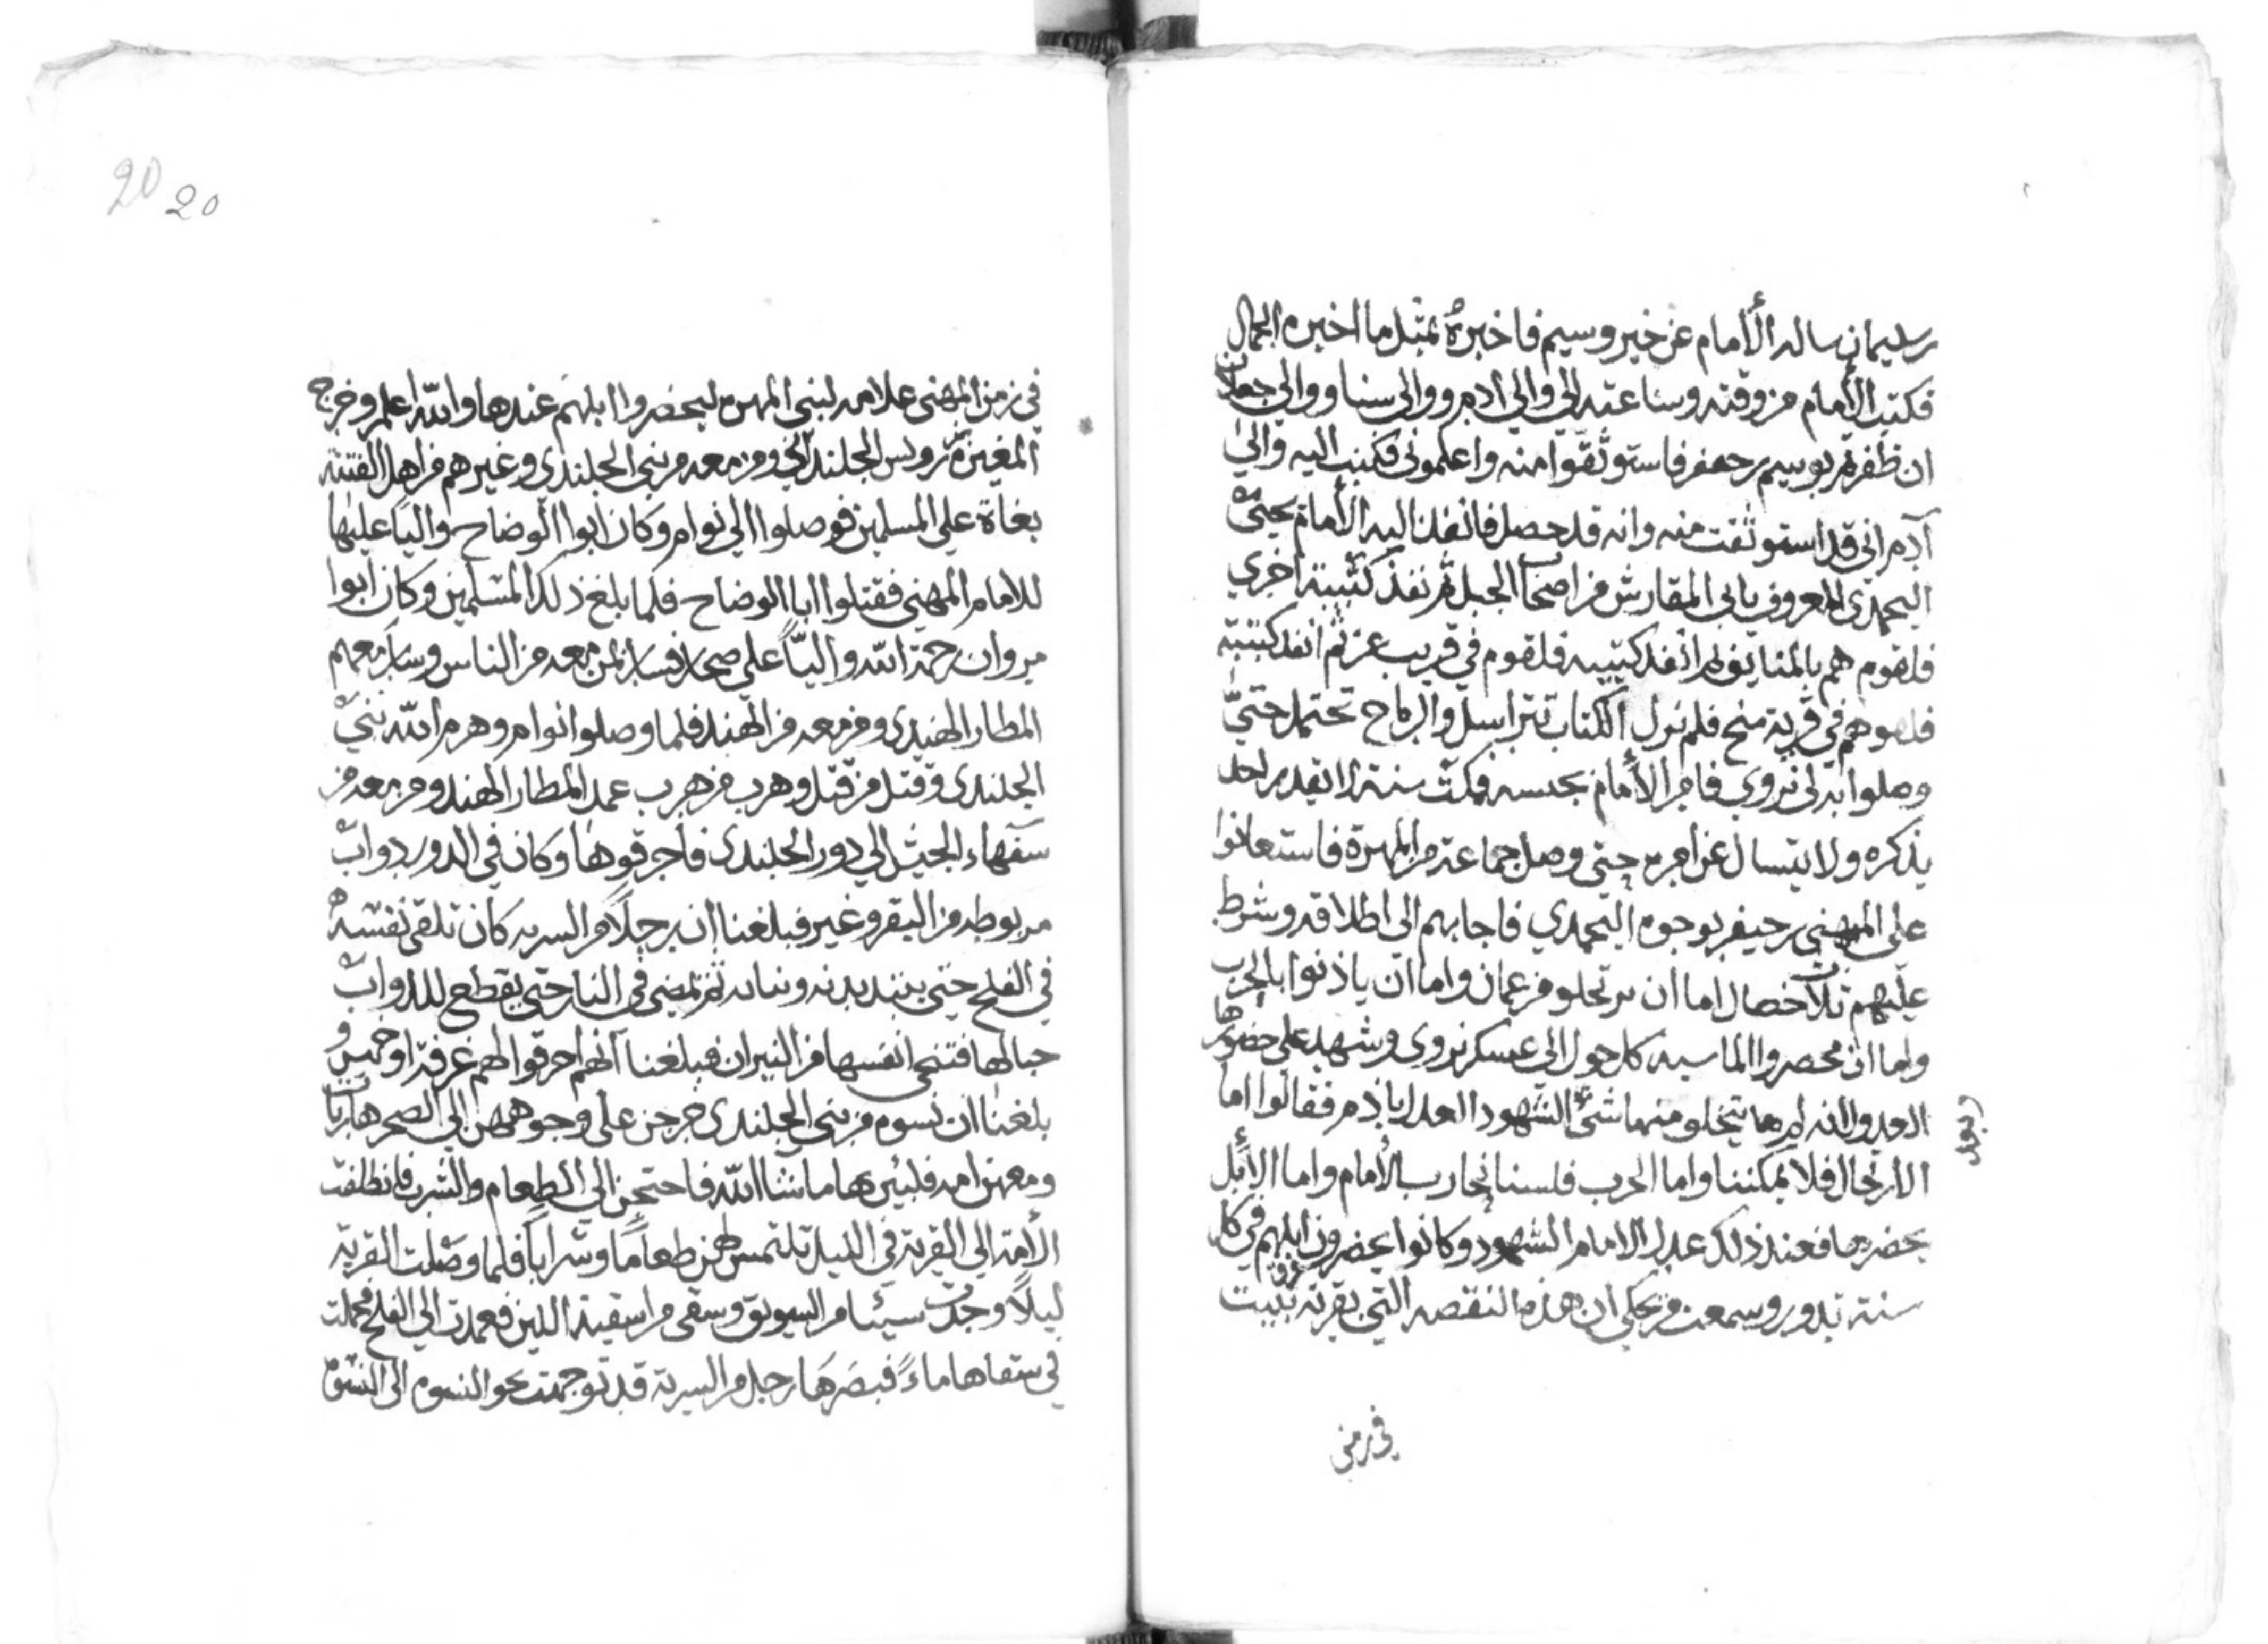 بن سليمان ساله الأمام عن خبر وسيم فاخبرهُ بمثل ما اخبره الجمال
فكتب الأمام من وقته وساعته الي والي ادم ووالى سنا ووالي جعلان
ان ظفرتم بوسيم بن جعفر فاستوثقوا منه واعلموني فكتب اليه والي
آدم اني قد استوثقت منه وانه قد حصل فانفذ اليه الأمام يحيى
اليحمدي المعروف بابى المقارش من اصحاب الخيل ثم نفذ كتيبة اخري
فلقوهم بالمنايف ثم انفذ كتيبة فلقوهم في قريب عز ثم انفذ كتيبة
فلقوهم في قرية منح فلم تزل الكتاب تتراسل والرماح تحتمل حتيّ
وصلوا به الى نزوي فامر الأمام بحبسه فمكث سنة لا يقدر احد
يذكره ولا يتسال عن امره حتى وصل جماعة من المهرة فاستعانوا
على المهني بن جيفر بوجوه اليحمدي فاجابهم الى اطلاقه وشرط
عليهم ثلاث خصال اما ان يرتحلو من عمان واما ان ياذنوا بالحرب
واما ان يحضروا الماسيه كل حول الى عسكر نزوى وشهيد علي حضورها
العدول انه لم يتخلو منها شئ الشهود العدل باذم فقالوا اما
الارتحال فلا يمكننا واما الحرب فلسنا نحارب الأمام واما الأبل
نحضرها فعند ذلك عدل الامام الشهود وكانوا يحضرون ابلهم في كل
سنة تدور وسمعت من يحكي ان هذه النقصه التي بقرية فرق تثبت
في زمن
20 20
في زمن المهنى علامه لبني المهره ليحضروا ابلهم عندها والله اعلم وخرج
المغيرة بن روسن الجلنداني ومن معه من بني الجلندي وغيرهم من اهل الفتنة
بغاة علي المسلمين فوصلوا الي توام وكان ابوا الوضاح والياً عليها
للامام المهني فقتلوا ابا الوضاح فلما بلغ ذلك المسلمين وكان ابوا
مروان رحمة الله والياً على صحار فسار بمن معه من الناس وسار معهم
المطار الهندي ومن معه من الهند فلما وصلوا توام وهزم الله بني
الجلندى وقتل من قتل وهرب من هرب عمد المطار الهندو ومن معه من
سفهاء الجيش الي دور الجلندى فاحرقوها وكان في الدور دوابّ
مربوطه من البقر وغير فبلغنا ان رجلاً من السريه كان تلقي نفسه
في الفلج حتى يبتد بدنه وثيابه ثم يمضي في النار حتى يقطع للدواب
حبالها فتنجي انفسها من النيران فبلغنا انهم احرقوا لهم غرفة او خمسين و
بلغنا ان نسوم من بني الجلندى خرجن على وجوههن الي الصحر هاربات
ومعهن امه فلبثن بها ما شا الله فاحتجن الي الطعام والشرب فانطلقت
الأمة الي القرية في الليل تلتمس لهن طعاماً وشراباً فلما وصلت القرية
ليلاً وجدت سيئا من السويق وسقي من اسقية اللبن فعمدت الي الفلج فحملت
في سقاها ماءً فبصرها رجل من السرية قد توجهت نحو النسوم الى النسوم